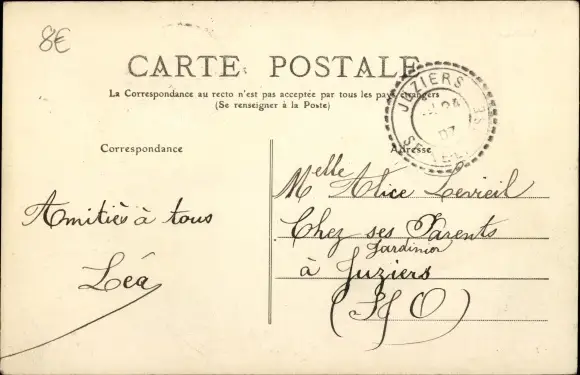 8€
CARTE POSTALE
La Correspondance au recto n'est pas acceptée par tous les pays étrangers
(Se renseigner à la Poste)
JUZIERS
07
Correspondance
Adresse
Amitiés à tous
Léa
Melle Alice Levieil
Chez ses Parents
Jardinier
à Juziers
(S O)